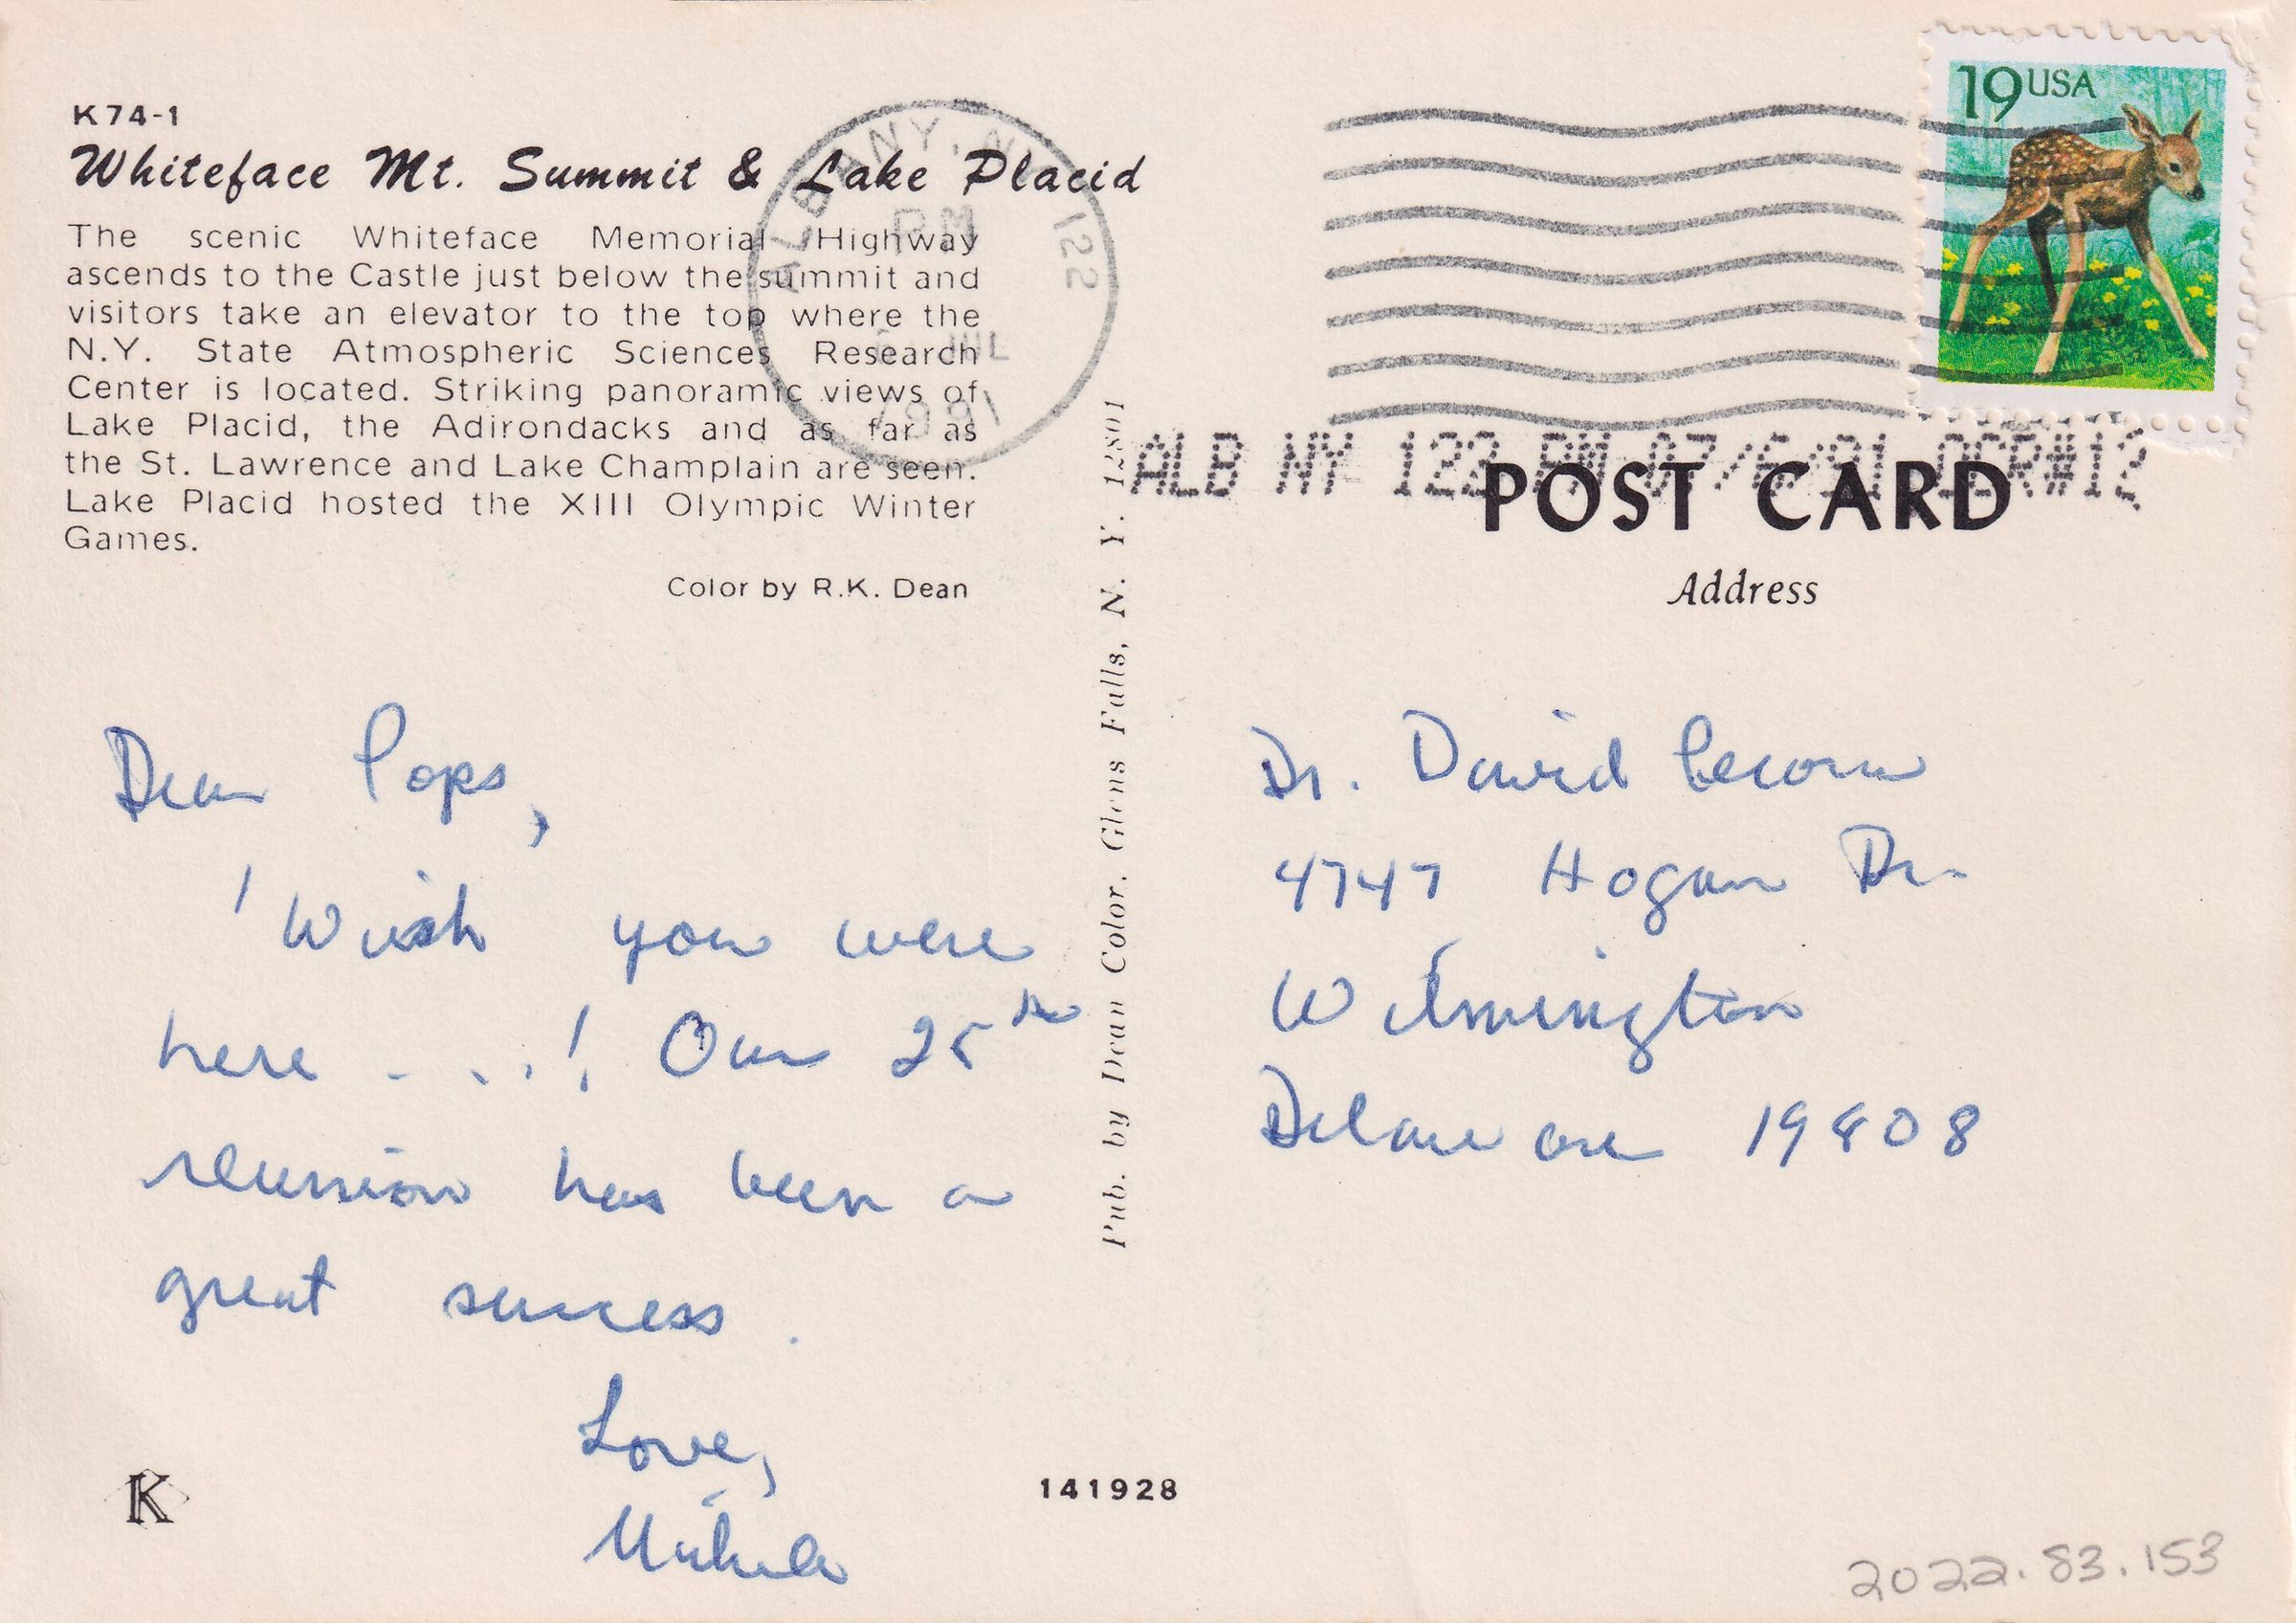 K74-1
Whiteface Mt. Summit & Lake Placid
The scenic Whiteface Memorial Highway
ascends to the Castle just below the summit and
visitors take an elevator to the top where the
N.Y. State Atmospheric Sciences Research
Center is located. Striking panoramic views of
Lake Placid, the Adirondacks and as far as
the St. Lawrence and Lake Champlain are seen.
Lake Placid hosted the XIII Olympic Winter
Games.
Color by R.K. Dean
ALBANY, NY 122
PM
6 JUL
1991
19 USA
ALB NY 122 PM 07/6/91 OCR#12
POST CARD
Address
Pub. by Dean Color, Glens Falls, N. Y. 12801
Dear Pops,
'Wish you were
here ....! Our 25th
reunion has been a
great success.
Love,
Dr. David
4747 Hogan Dr.
Wilmington
Delaware 19808
K
141928
2022.83.153